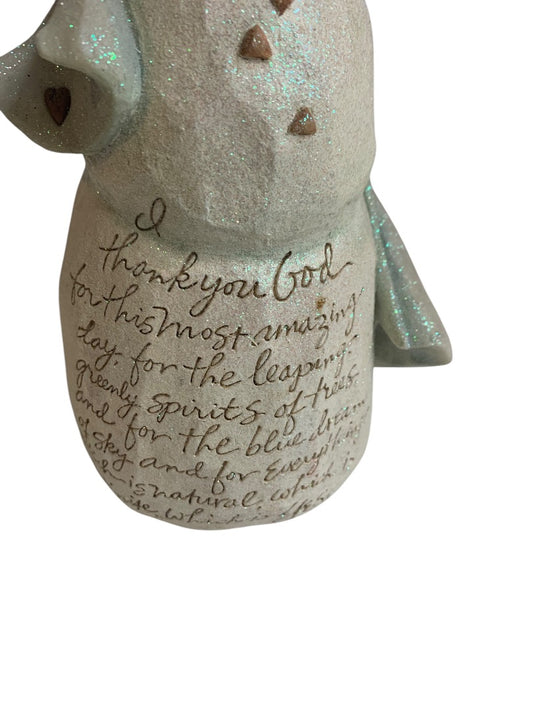 I
thank you God
for this most amazing
day, for the leaping
greenly spirits of trees
and for the blue dream
of sky and for everything
which is natural, which is
which is